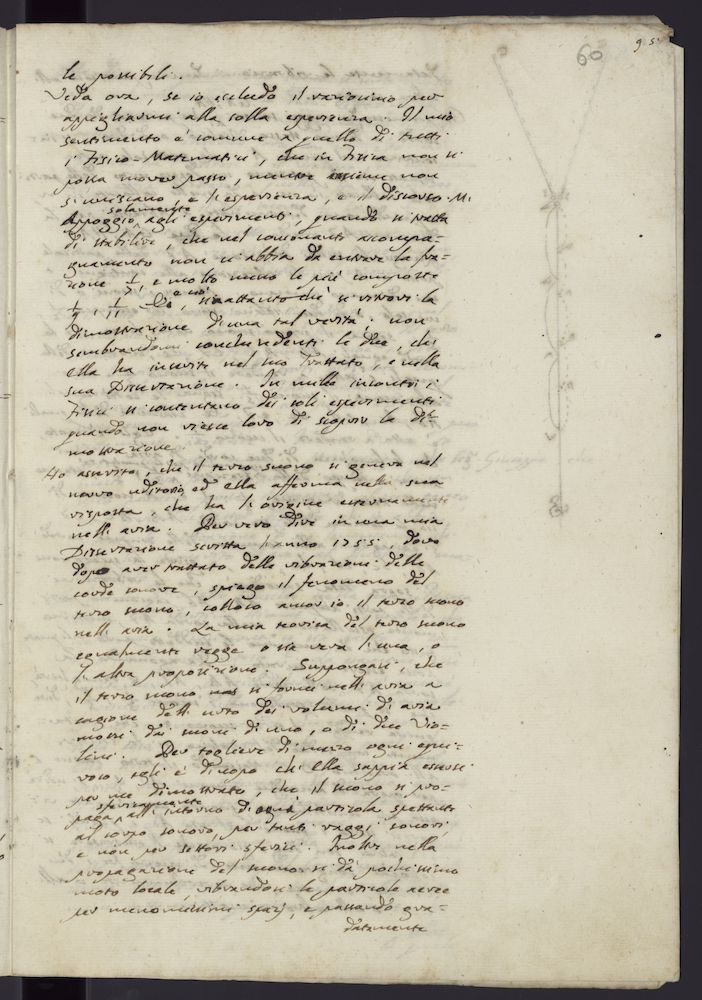 60
9 5
le possibili.
Veda ora, se io escludo il raziocinio per
appigliarmi alla solla esperienza. Il mio
sentimento è comune a quello di tutti
i Fisico-Matematici, che in Fisica non si
possa mover passo, mentre insieme non
si uniscano, e l'esperienza, e il discorso. M:
Appoggio solamente agli esperimenti, quando si tratta
di stabilire, che nel consonante accompa=
gnamento non si abbia da entrare la fra=
zione 1/7, e molto meno le più composte
1/9, 1/11 e ciò, sinattanto chè si ritrovi la
dimostrazione di una tal verità; non
sembrandomi concludenti le due, che
ella ha inserite nel suo Trattato, e nella
sua Dissertazione. In mille incontri i
Fisici si contentano dei soli esperimenti
quando non riesce loro di scoprir la di=
mostrazione.
Ho asserito, che il terzo suono si genera nel
nervo uditorio, ed ella afferma nella sua
risposta, che ha l'origine esternamente
nell'aria. Per vero dire in una mia
Dissertazione scritta l'anno 1755, dove
dopo aver trattato delle vibrazioni delle
corde sonore, spiego il fenomeno del
terzo suono, colloco ancor io il terzo suono
nell'aria. La mia teorica del terzo suono
egualmente regge o sia vera l'una, o
l'altra proposizione. Suppongasi, che
il terzo suono si formi nell'aria a
cagione dell'urto dei volumi di aria
mossi dai suoni di uno, o di due Vio=
lini. Per togliere di mezzo ogni equi=
voco, egli è d'uopo che Ella sappia essersi
per me dimostrato, che il suono si pro=
paga sfericamente all'intorno di ogni particola spettante
al corpo sonoro, per tanti raggi sonori,
e non per settori sferici. Inoltre nella
propagazione del suono si dà pochissimo
moto locale, vibrandosi le particole aeree
per menomissimi spazj, e passando gra=
datamente